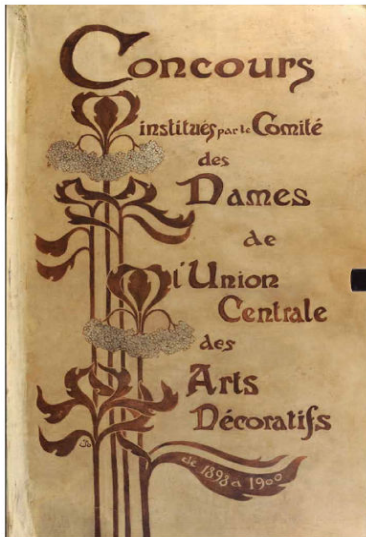 Concours
institués par le Comité
des
Dames
de
l'Union
Centrale
des
Arts
Décoratifs
de 1898 à 1900